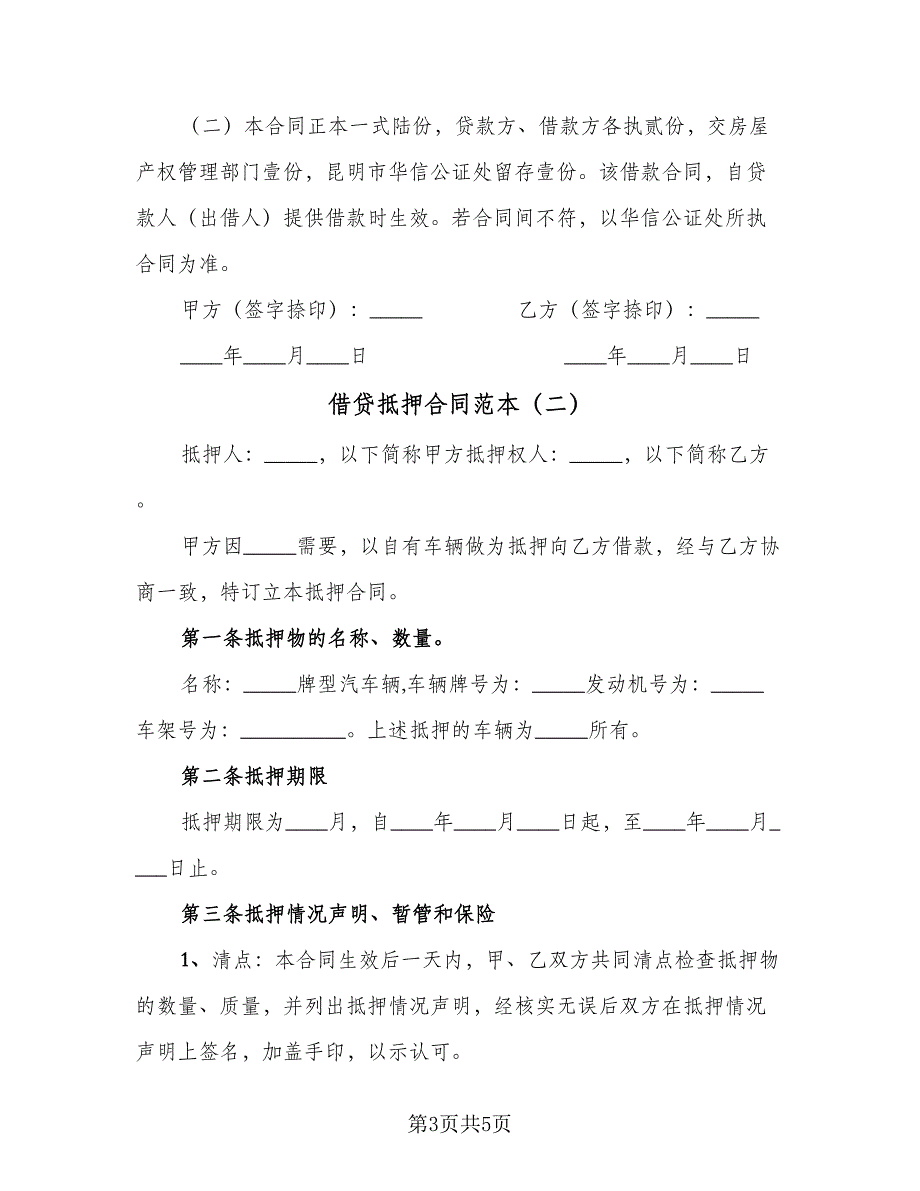 （二）本合同正本一式陆份，贷款方、借款方各执贰份，交房屋
产权管理部门壹份，昆明市华信公证处留存壹份。该借款合同，自贷
款人（出借人）提供借款时生效。若合同间不符，以华信公证处所执
合同为准。
甲方（签字捺印）：_____ 乙方（签字捺印）：_____
____年____月____日 ____年____月____日
借贷抵押合同范本（二）
抵押人：_____，以下简称甲方抵押权人：_____，以下简称乙方
。
甲方因_____需要，以自有车辆做为抵押向乙方借款，经与乙方协
商一致，特订立本抵押合同。
第一条抵押物的名称、数量。
名称：_____牌型汽车辆,车辆牌号为：_____发动机号为：_____
车架号为：__________。上述抵押的车辆为_____所有。
第二条抵押期限
抵押期限为____月，自____年____月____日起，至____年____月_
___日止。
第三条抵押情况声明、暂管和保险
1、清点：本合同生效后一天内，甲、乙双方共同清点检查抵押物
的数量、质量，并列出抵押情况声明，经核实无误后双方在抵押情况
声明上签名，加盖手印，以示认可。
第3页共5页